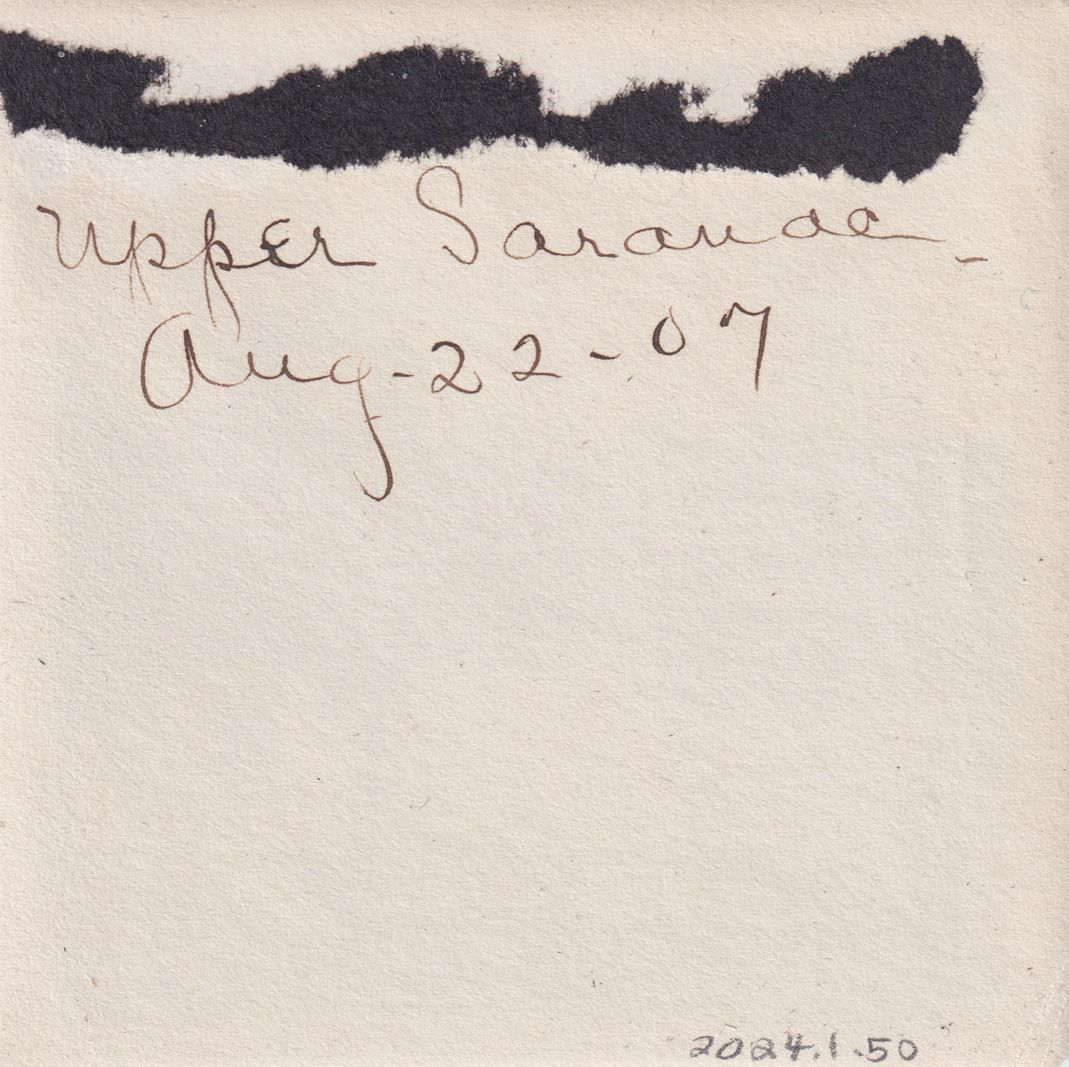 Upper Saranac -
Aug-22-07
2024.1.50